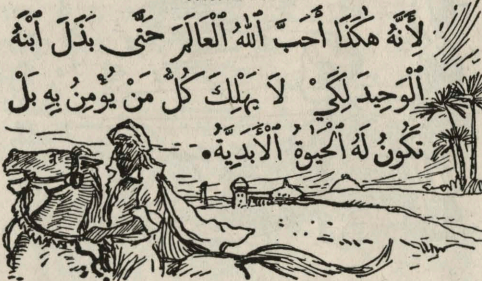 لِأَنَّهُ هٰكَذَا أَحَبَّ ٱللهُ ٱلْعَالَمَ حَتَّى بَذَلَ ٱبْنَهُ
ٱلْوَحِيدَ لِكَيْ لَا يَهْلِكَ كُلُّ مَنْ يُؤْمِنُ بِهِ بَلْ
تَكُونُ لَهُ ٱلْحَيٰوةُ ٱلْأَبَدِيَّةُ.